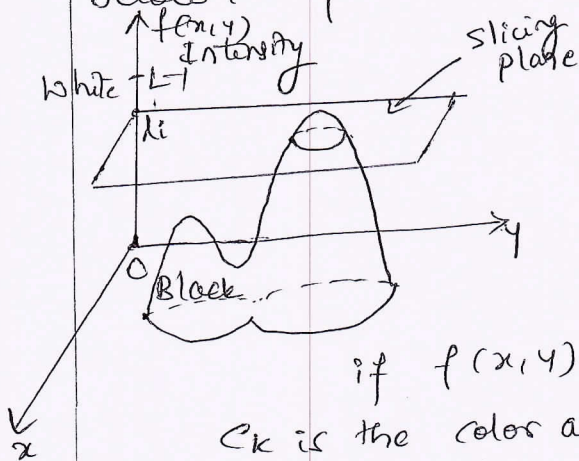 f(x,y)
Intensity
slicing
plane
White L-1
li
y
O
Black
if f(x,y)
x
CK is the color a